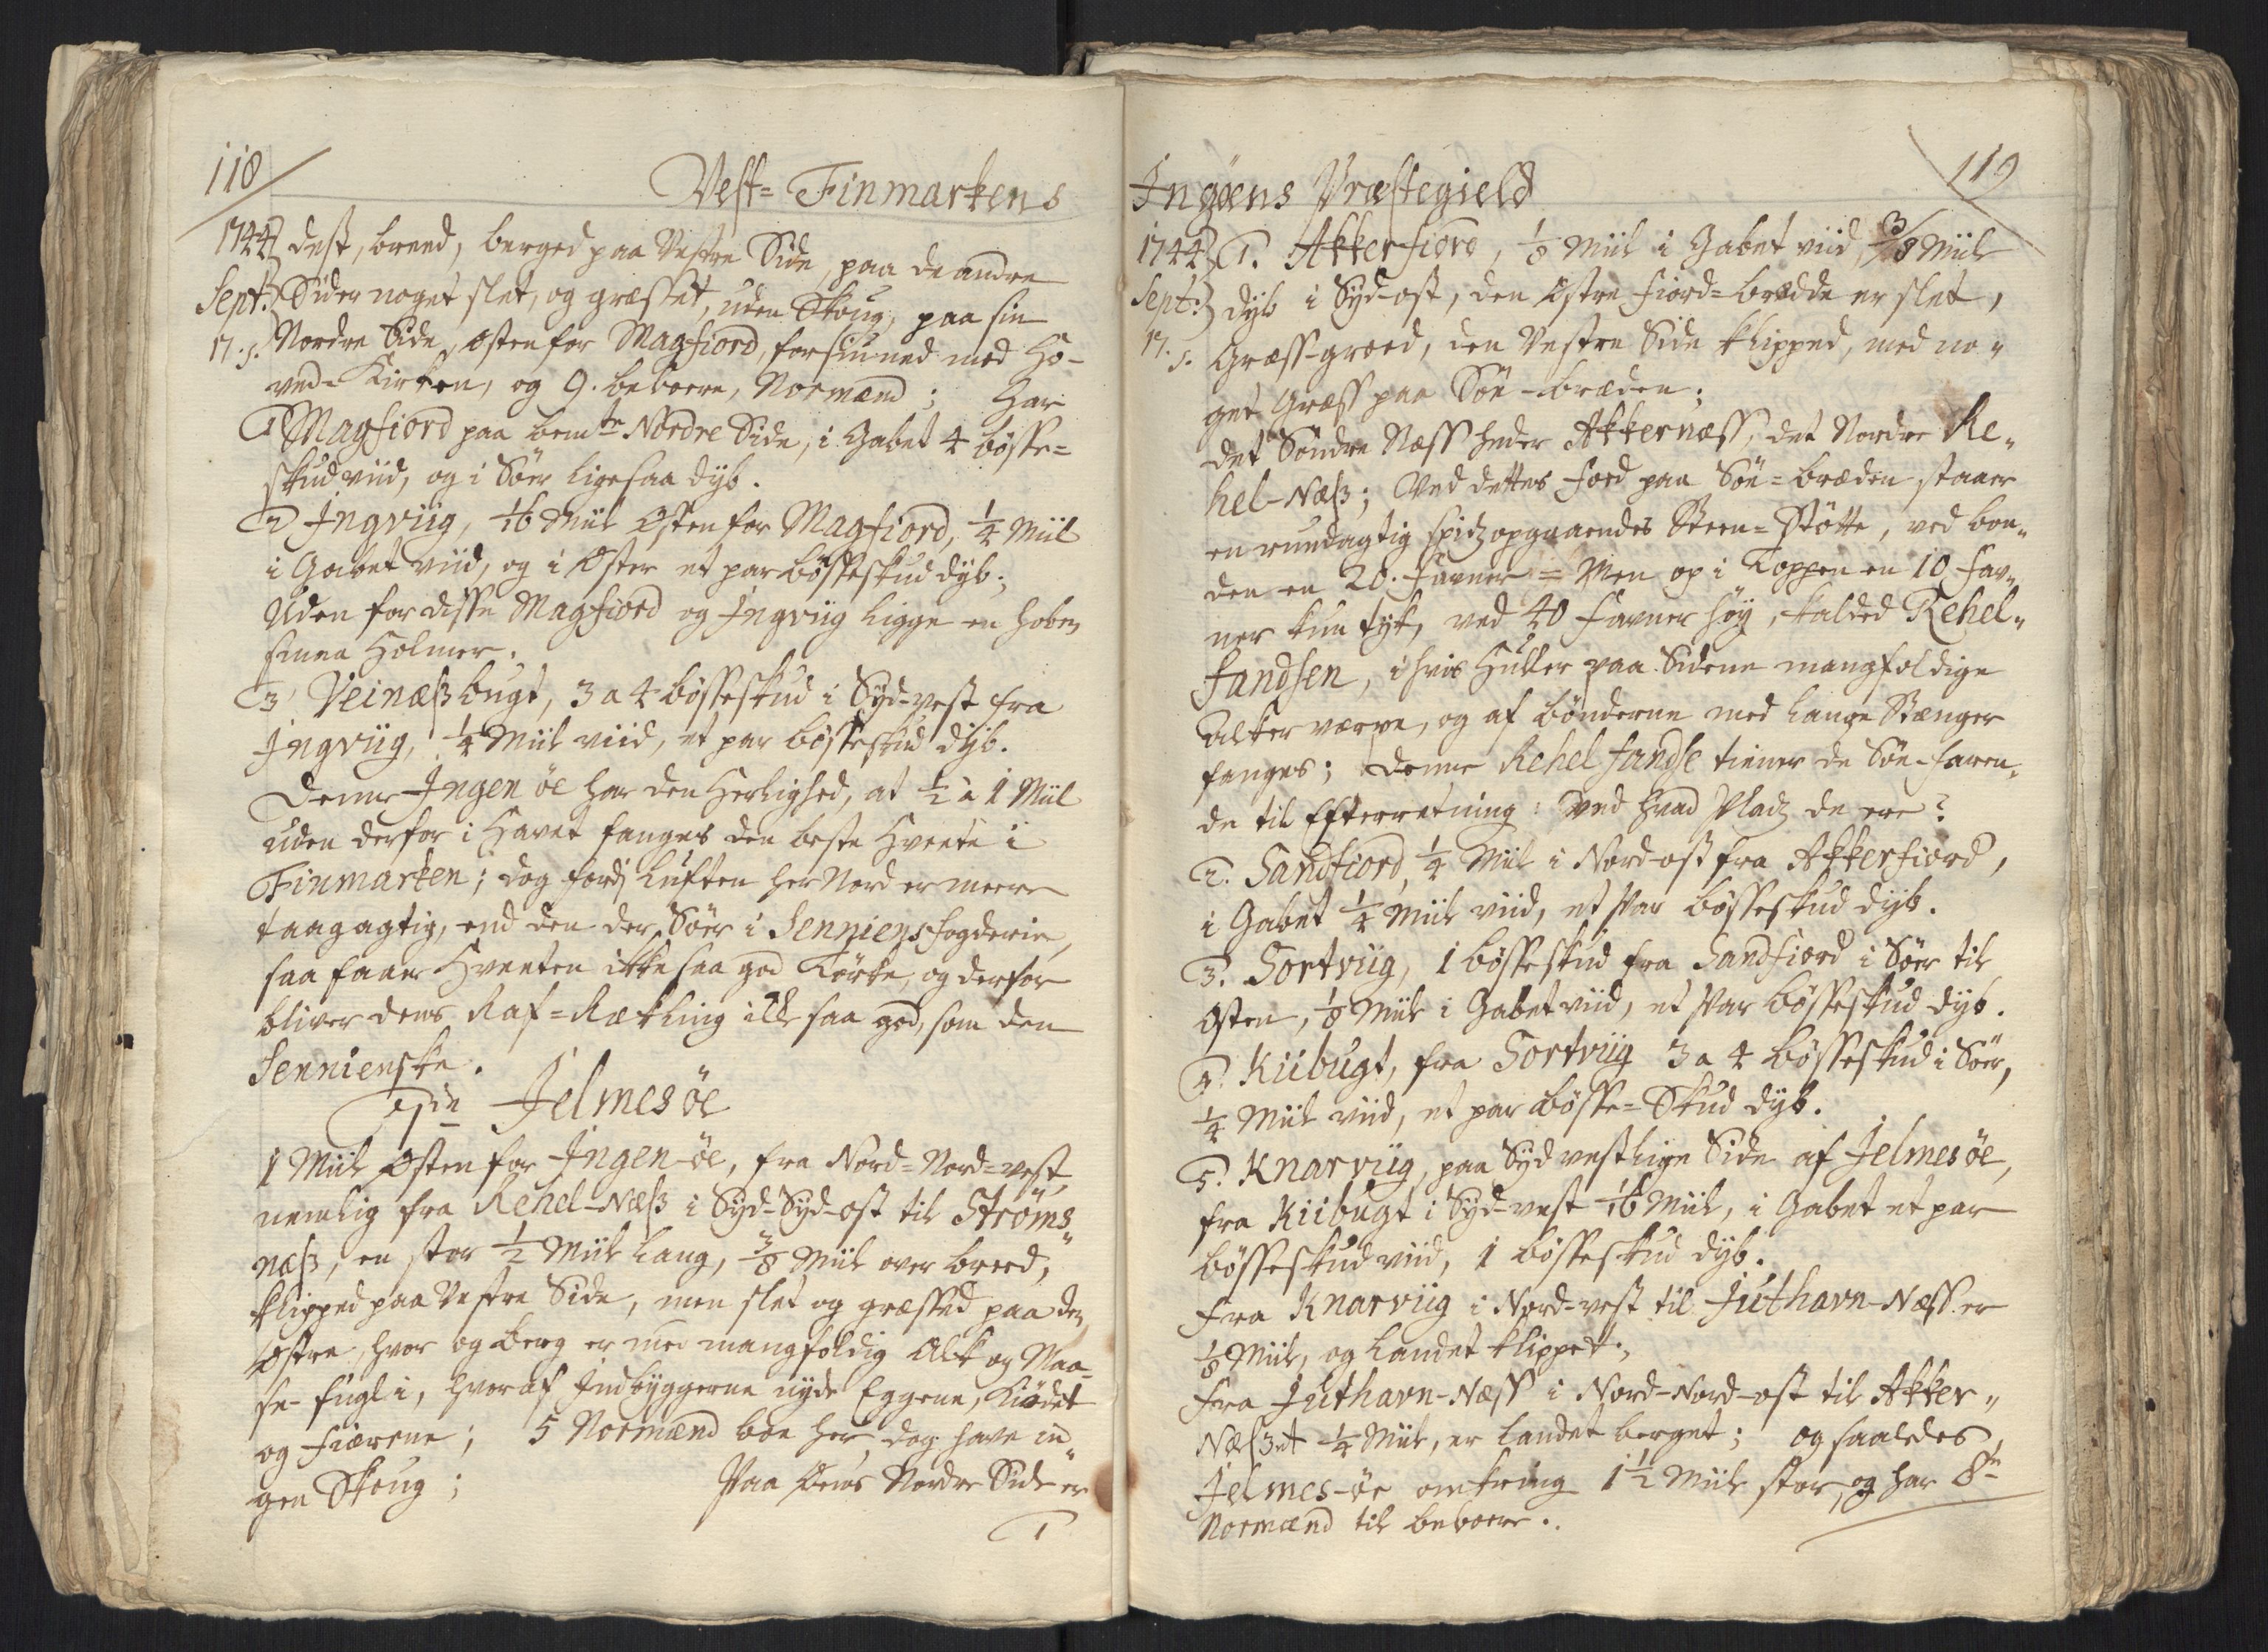 118
Vest-Finmarkens
1744 dest, breed, berged paa Vestre Side, paa de andre
Sept: Sider noget slet, og græsset, uden Skoug, paa sin
17. s. Nordre Side, østen for Magfiord, forsiuned med Ho-
ved-Kirken, og 9. beboere, Normænd; Har
1 Magfiord paa bemte Nordre Side, i Gabet 4 bösse-
skud viid, og i Söer ligesaa dyb.
2 Ingviig, 1/16 Miil Østen for Magfiord, 1/4 Miil
i Gabet viid, og i Øster et par bösseskud dyb;
Uden for disse Magfiord og Ingviig ligge en hoben
smaa Holmer.
3 Veinæsbugt, 3 a 4 bösseskud i Syd-vest fra
Ingviig, 1/4 Miil viid, et par bösseskud dyb.
Denne Ingen öe har den Herlighed, at 1/2 à 1 Miil
uden derfor i Havet fanges den beste Hveete i
Finmarken; dog fordj Luften her Nord er meere
taagagtig, end den der Söer i Senniens fogderie,
saa faaer Hveeten ikke saa god Törke, og derfor
bliver dens Raf-Rækling ikke saa god, som den
Sennienske.
7de Jelmesöe
1 Miil Østen for Ingen-öe, fra Nord-Nord-vest,
nemlig fra Rehel-Næss i Syd-Syd-ost til Ströms"
næss, en stor 1/2 Miil lang, 3/8 Miil over breed,
klipped paa Vestre Side, men slet og græssed paa den
Østre, hvor og berg er med mangfoldig Alk og Maa-
se-fugl i, hvoraf Indbyggerne nyde Eggene, Kiödet
og fiærene; 5 Normænd boe her, dog have in"
gen Skoug; Paa Öens Nordre Side er
1
119
Ingöens Præstegield
1744 1. Akkerfiord, 1/8 Miil i Gabet viid, 3/8 Miil
Sept: dyb i Syd-ost, den Østre fiord-bredde er slet,
17. s. Græss-groed, den Vestre Side klipped, med no"
get Græss paa Söe-bræden;
det Søndre Næss heder Akkernæss, det Nordre Re"
hel-Næss; Ved dettes foed paa Söe-bræden staaer
en rundagtig spidzopgaaendes Steen-Stötte, ved bon"
den en 20. favner - Men op i Toppen en 10 fav"
ner kun tyk, ved 40 favner höy, kalded Rehel"
fandsen, i hvis Huller paa Sidene mangfoldige
Alker værpe, og af bönderne med lange Stænger
fanges; denne Rehelfandse tiener de Söe-faren"
de til Efterretning: ved hvad Pladz de ere?
2. Sandfiord, 1/4 Miil i Nord-ost fra Akkerfiord,
i Gabet 1/4 Miil viid, et Par bösseskud dyb.
3. Sortviig, 1 bösseskud fra Sandfiord i Söer til
Østen, 1/8 Miil i Gabet viid, et Par bösseskud dyb.
4. Kiibugt, fra Sortviig 3 a 4 bösseskud i Söer,
1/4 Miil viid, et par bösse-Skud dyb.
5. Knarviig, paa Sydvestlige Side af Jelmesöe,
fra Kiibugt i Syd-vest 1/16 Miil, i Gabet et par
bösseskud viid, 1 bösseskud dyb.
Fra Knarviig i Nord-vest til Juthavn-Næss er
1/8 Miil, og Landet klippet.,
Fra Juthavn-Næss i Nord-Nord-ost til Akker"
Næsset 1/4 Miil, er Landet berget; og saaledes
Jelmes-öe omkring 1 1/2 Miil stor, og har 8te
Normænd til beboere.